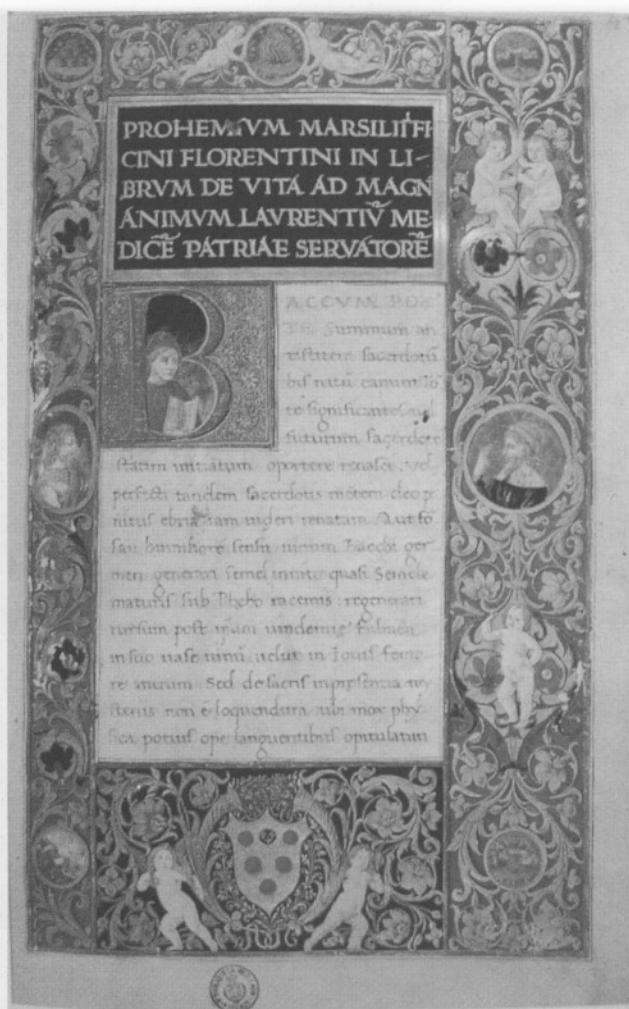 PROHEMIVM MARSILII FI
CINI FLORENTINI IN LI-
BRVM DE VITA AD MAGN̄
ANIMVM LAVRENTIV̄ ME-
DICĒ PATRIAE SERVATORĒ
B
ACCVM POE
TE Summum an
tistitem sacerdotū
bis natū canunt. Fo
te significantes uel
futurum sacerdotē
statim initiatum oportere renasci: vel
perfecti tandem sacerdotis mētem deo pe
nitus ebriā iam uideri renatam. Aut fo
san humiliore sensu uinum Bacchi ger
men generari semel in uite quasi Semele
maturis sub Phebo racemis: regenerari
rursum post ipsum uindemie fulmen
in suo uase uinū uelut in Iouis femo
re merum. Sed de sacris inpresentia my
sterijs non ē loquendum ubi mox phy
sica potius ope languentibus opitulatur